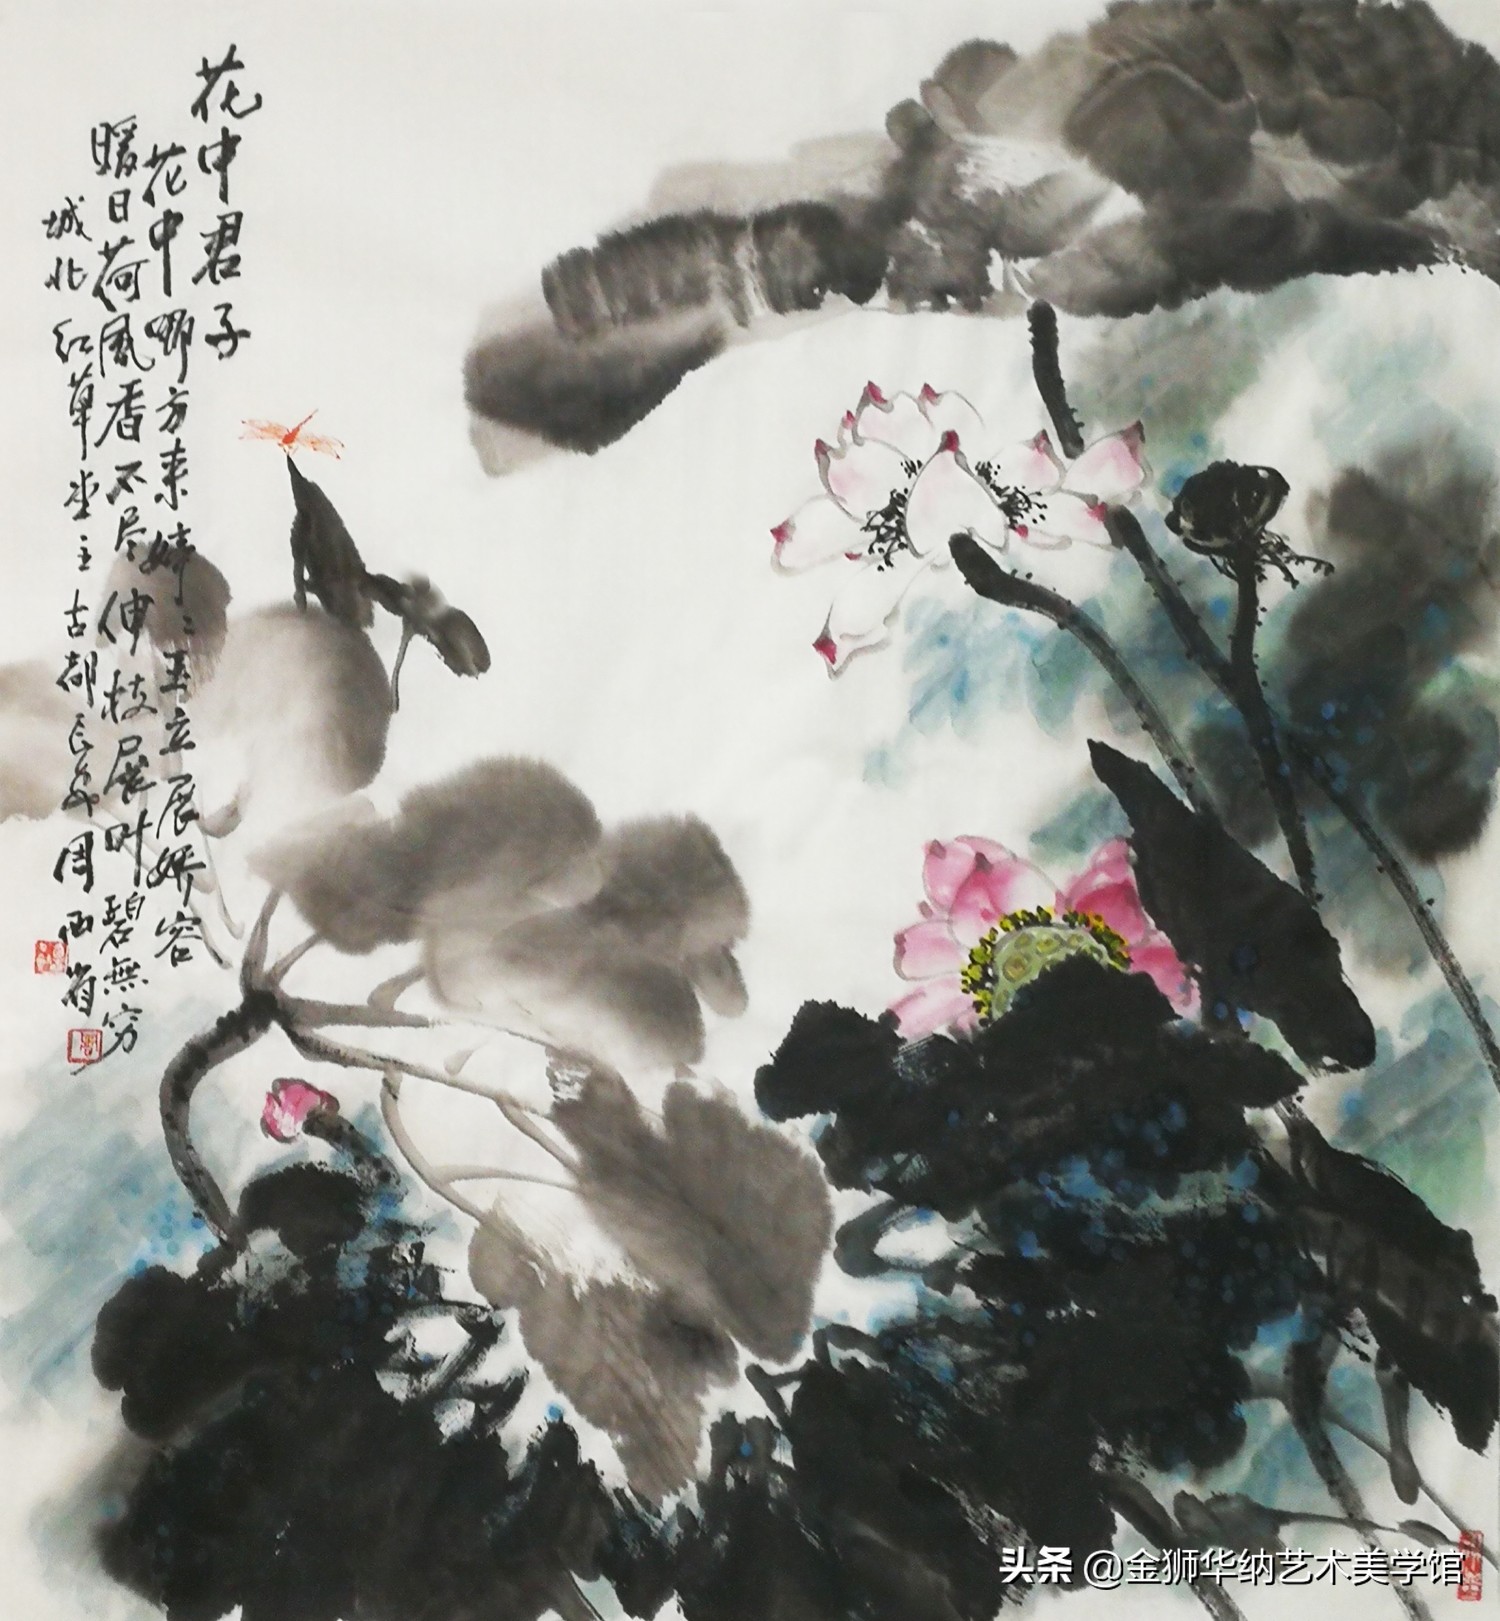 花中君子
花中方来婷々玉立展娇容
暖日荷风香不尽伸枝展叶碧無穷
城北红草堂主古都长安周西省
头条 @金狮华纳艺术美学馆